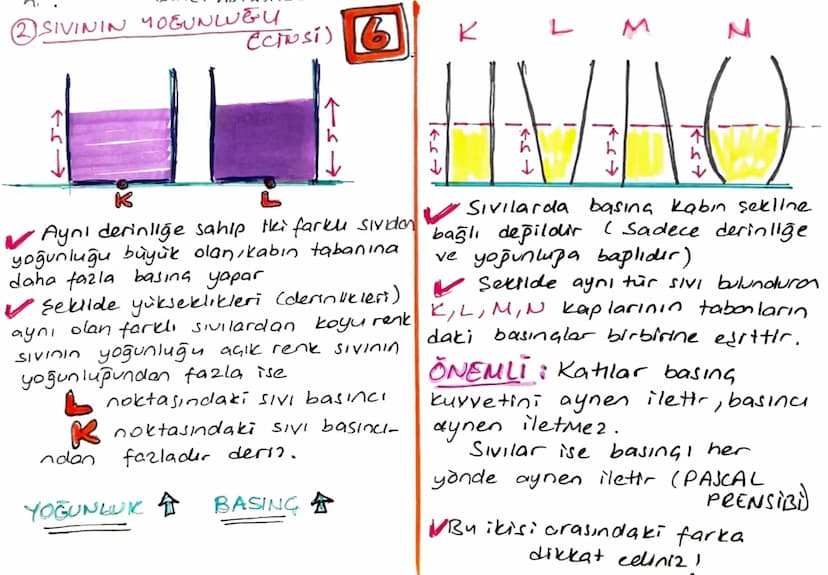 ② SIVININ YOĞUNLUĞU
(CİNSİ)
6
h
h
K
L
✓ Aynı derinliğe sahip iki farklı sıvıdan
yoğunluğu büyük olan, kabın tabanına
daha fazla basınç yapar
✓ Şekilde yükseklikleri (derinlikleri)
aynı olan farklı sıvılardan koyu renk
sıvının yoğunluğu açık renk sıvının
yoğunluğundan fazla ise
L noktasındaki sıvı basıncı
K noktasındaki sıvı basıncı-
ndan fazladır deriz.
YOĞUNLUK ↑ BASINÇ ↑
K L M N
h h h h
✓ Sıvılarda basınç kabın şekline
bağlı değildir (Sadece derinliğe
ve yoğunluğa bağlıdır)
✓ Şekilde aynı tür sıvı bulunduran
K, L, M, N kaplarının tabanların
daki basınçlar birbirine eşittir.
ÖNEMLİ : Katılar basınç
kuvvetini aynen iletir, basıncı
aynen iletmez.
Sıvılar ise basıncı her
yönde aynen iletir (PASCAL
PRENSİBİ)
✓ Bu ikisi arasındaki farka
dikkat ediniz!